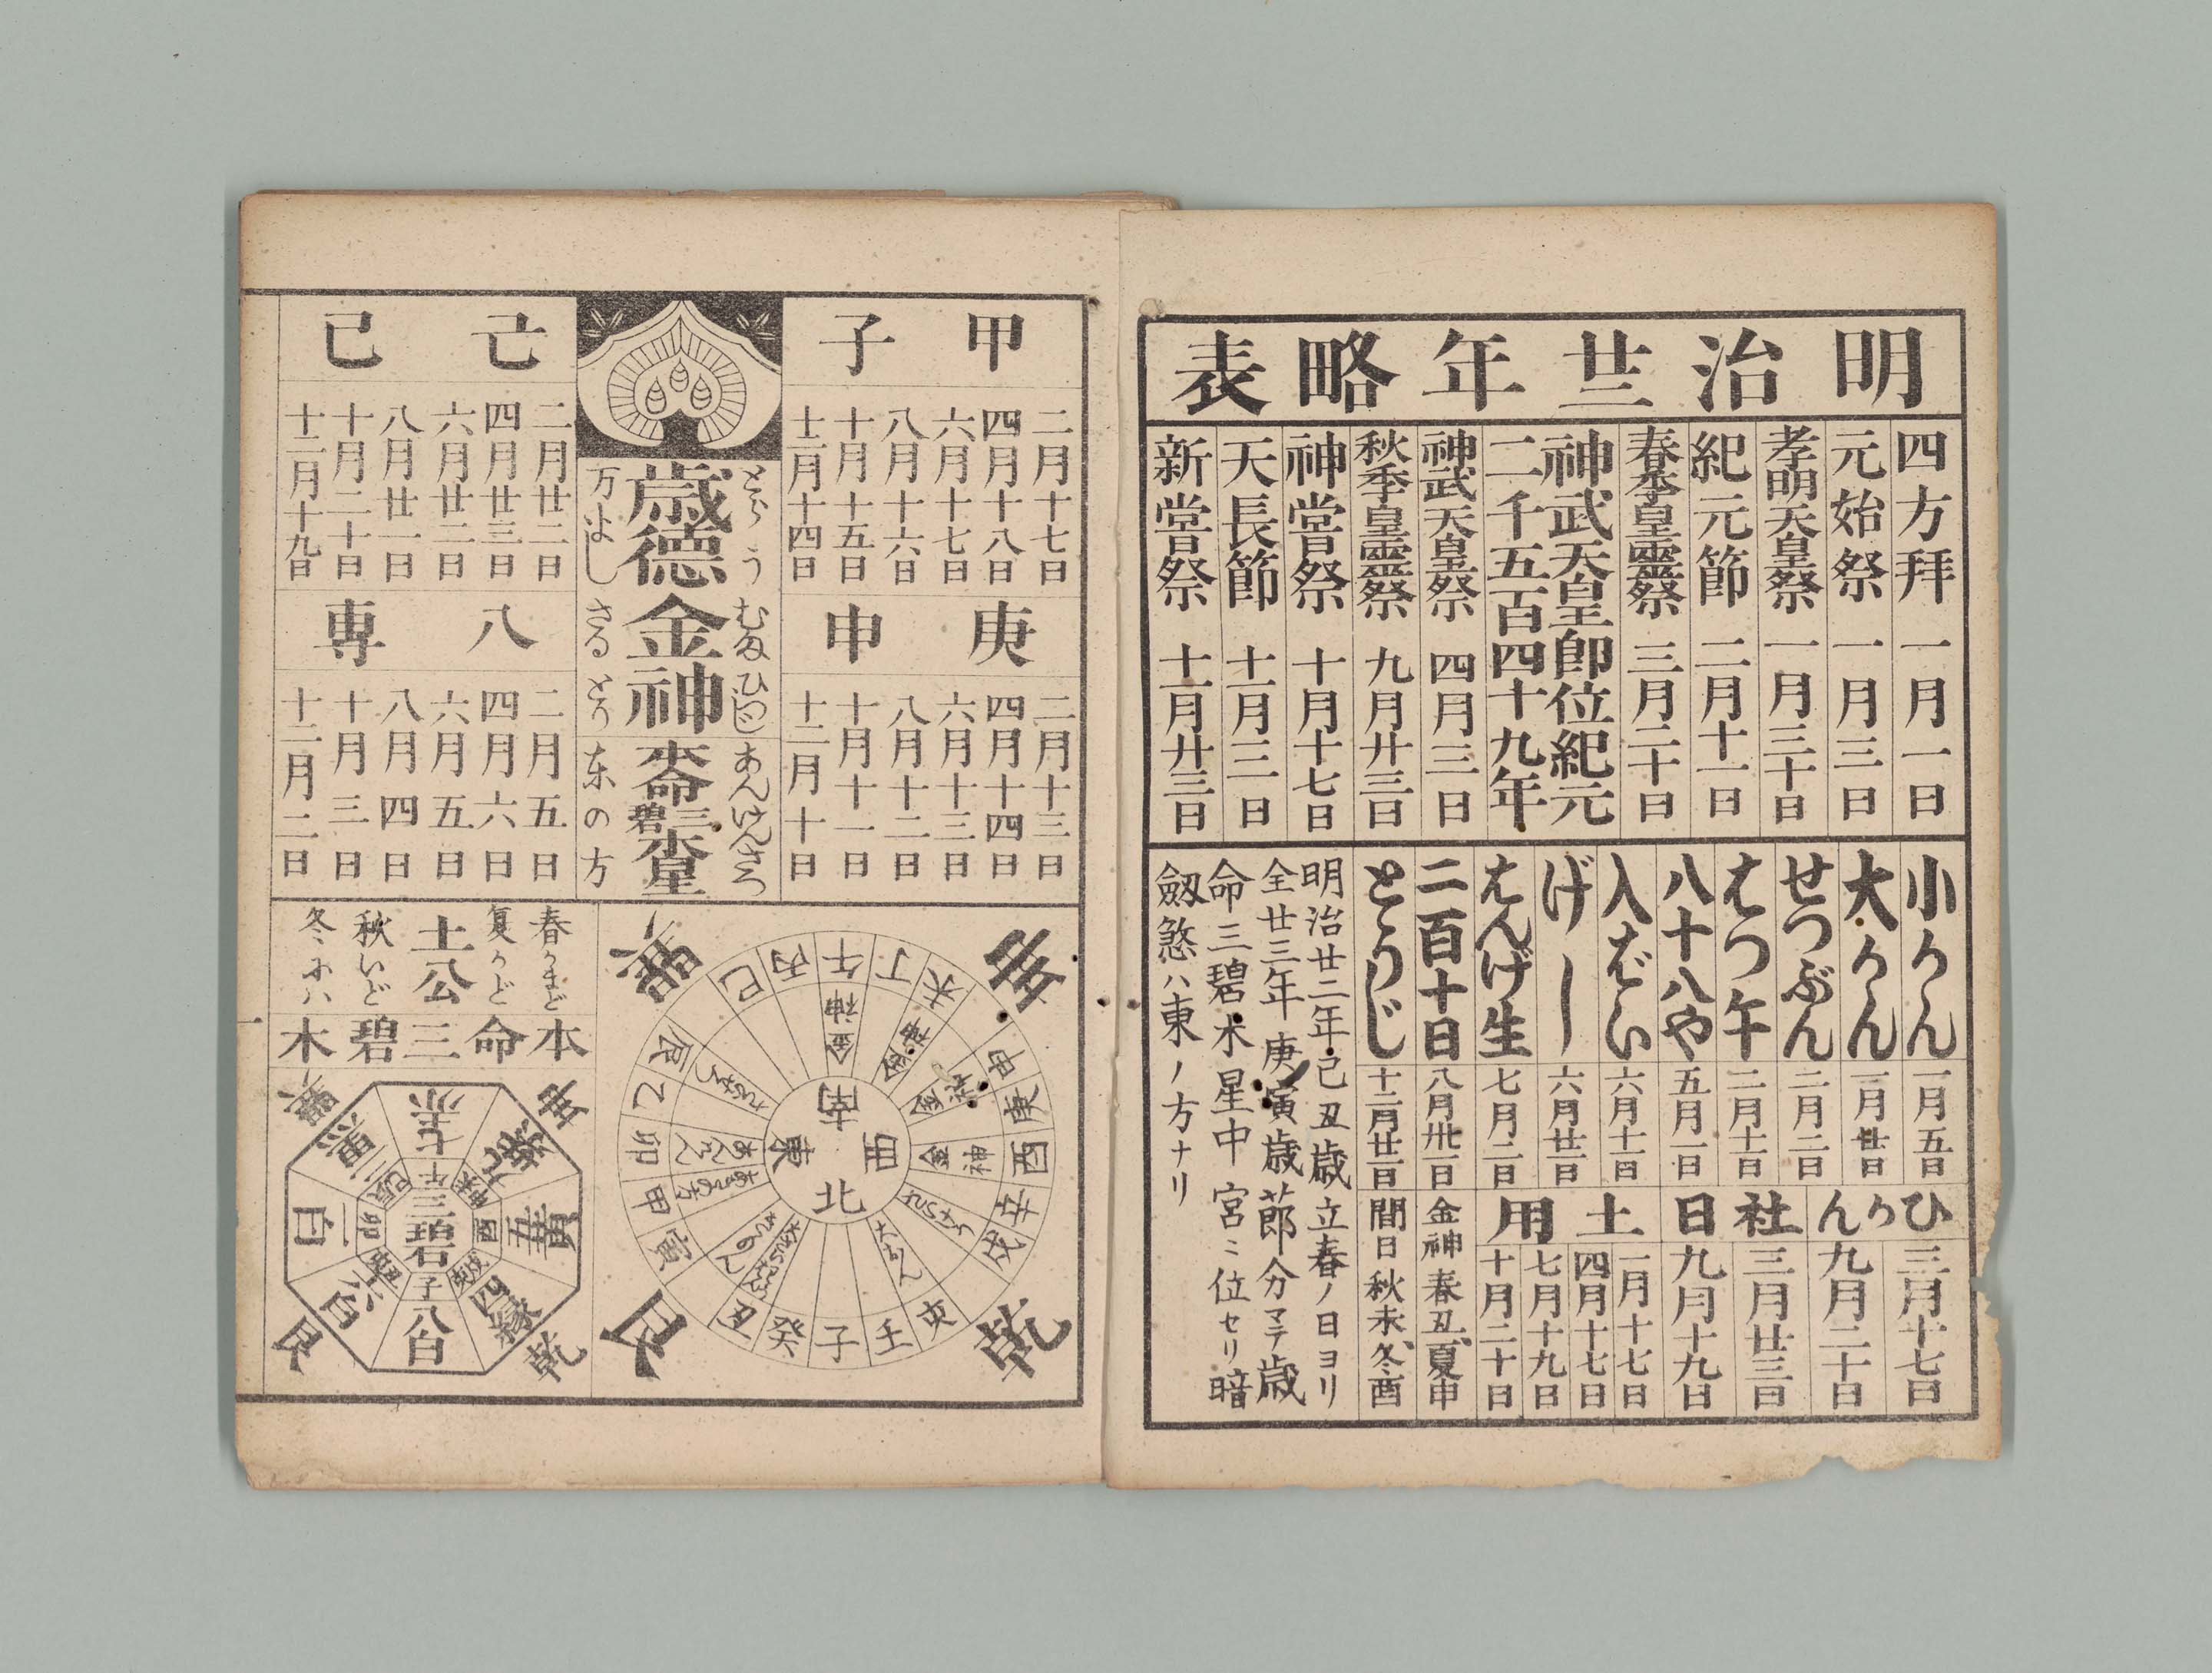 明治廿二年略表
四方拜 一月一日
元始祭 一月三日
孝明天皇祭 一月三十日
紀元節 二月十一日
春季皇靈祭 三月二十日
神武天皇即位紀元
二千五百四十九年
神武天皇祭 四月三日
秋季皇靈祭 九月廿三日
神嘗祭 十月十七日
天長節 十一月三日
新嘗祭 十一月廿三日
小かん 一月五日
大かん 一月廿日
せつぶん 二月二日
はつ午 二月十一日
八十八や 五月一日
入ばい 六月十一日
げし 六月廿一日
はんげ生 七月二日
二百十日 八月卅一日
とうじ 十二月廿一日
ひかん
三月十七日
九月二十日
社日
三月廿三日
九月十九日
土用
一月十七日
四月十七日
七月十九日
十月二十日
金神 春丑、夏申
間日 秋未、冬酉
明治廿二年己丑歳立春ノ日ヨリ
仝廿三年庚寅歳節分マテ歳
命三碧木星中宮ニ位セリ暗
劔煞ハ東ノ方ナリ
甲子
二月十七日
四月十八日
六月十七日
八月十六日
十月十五日
十二月十四日
庚申
二月十三日
四月十四日
六月十三日
八月十二日
十月十一日
十二月十日
とらう
歳德
万よし
むま ひつじ
金神
さる とり
あんけんさつ
本命三碧木星
東の方
亡己
二月廿二日
四月廿三日
六月廿二日
八月廿一日
十月二十日
十二月十九日
八専
二月五日
四月六日
六月五日
八月四日
十月三日
十二月二日
坤
巽
艮
乾
午
丁
未
申
庚
酉
辛
戌
亥
壬
子
癸
丑
寅
甲
卯
乙
辰
巳
丙
金神
金神
金神
金神
南
西
北
東
春かまど
夏かど
土公
秋いど
冬ハ
本命三碧木
坤
巽
艮
乾
七赤
五黄
四緑
八白
六白
一白
二黒
三碧
午
酉
子
卯
一